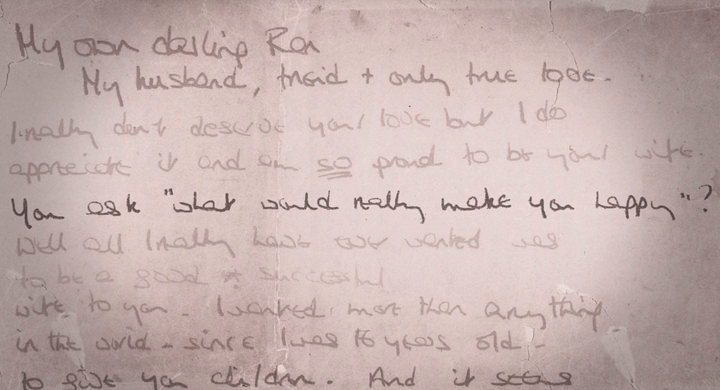 My own darling Ron
My husband, freid + only true love.
I really don't deserve your love but I do
appreciate it and am so proud to be your wife.
You ask "what would really make you happy"?
Well all I really have ever wanted was
to be a good & successful
wife to you. I wanted, more than anything
in the world - since I was 16 years old -
to give you children. And it seems